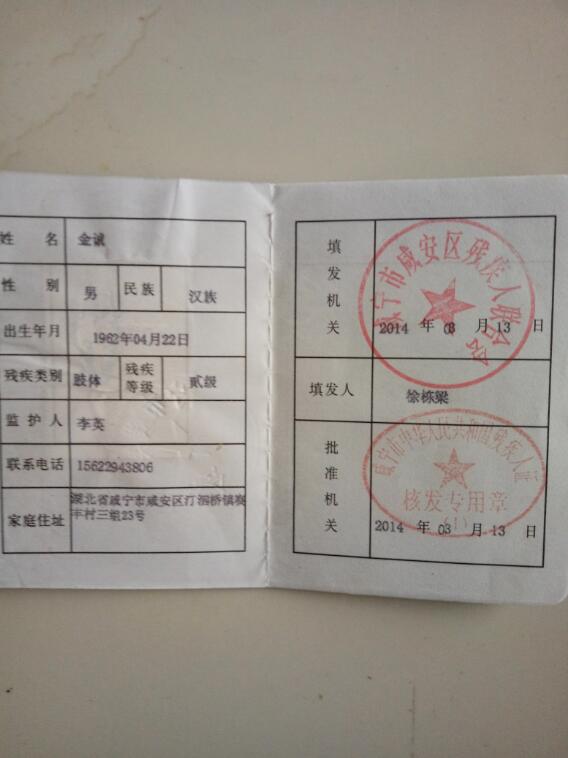 姓 名 金诚
性 别 男 民族 汉族
出生年月 1962年04月22日
残疾类别 肢体 残疾等级 贰级
监 护 人 李英
联系电话 15622943806
家庭住址 湖北省咸宁市咸安区汀泗桥镇赛
丰村三组23号
填发机关
咸宁市咸安区残疾人联合会
2014 年 03 月 13 日
填发人 徐栋梁
批准机关
咸宁市中华人民共和国残疾人证
核发专用章
(1)
2014 年 03 月 13 日